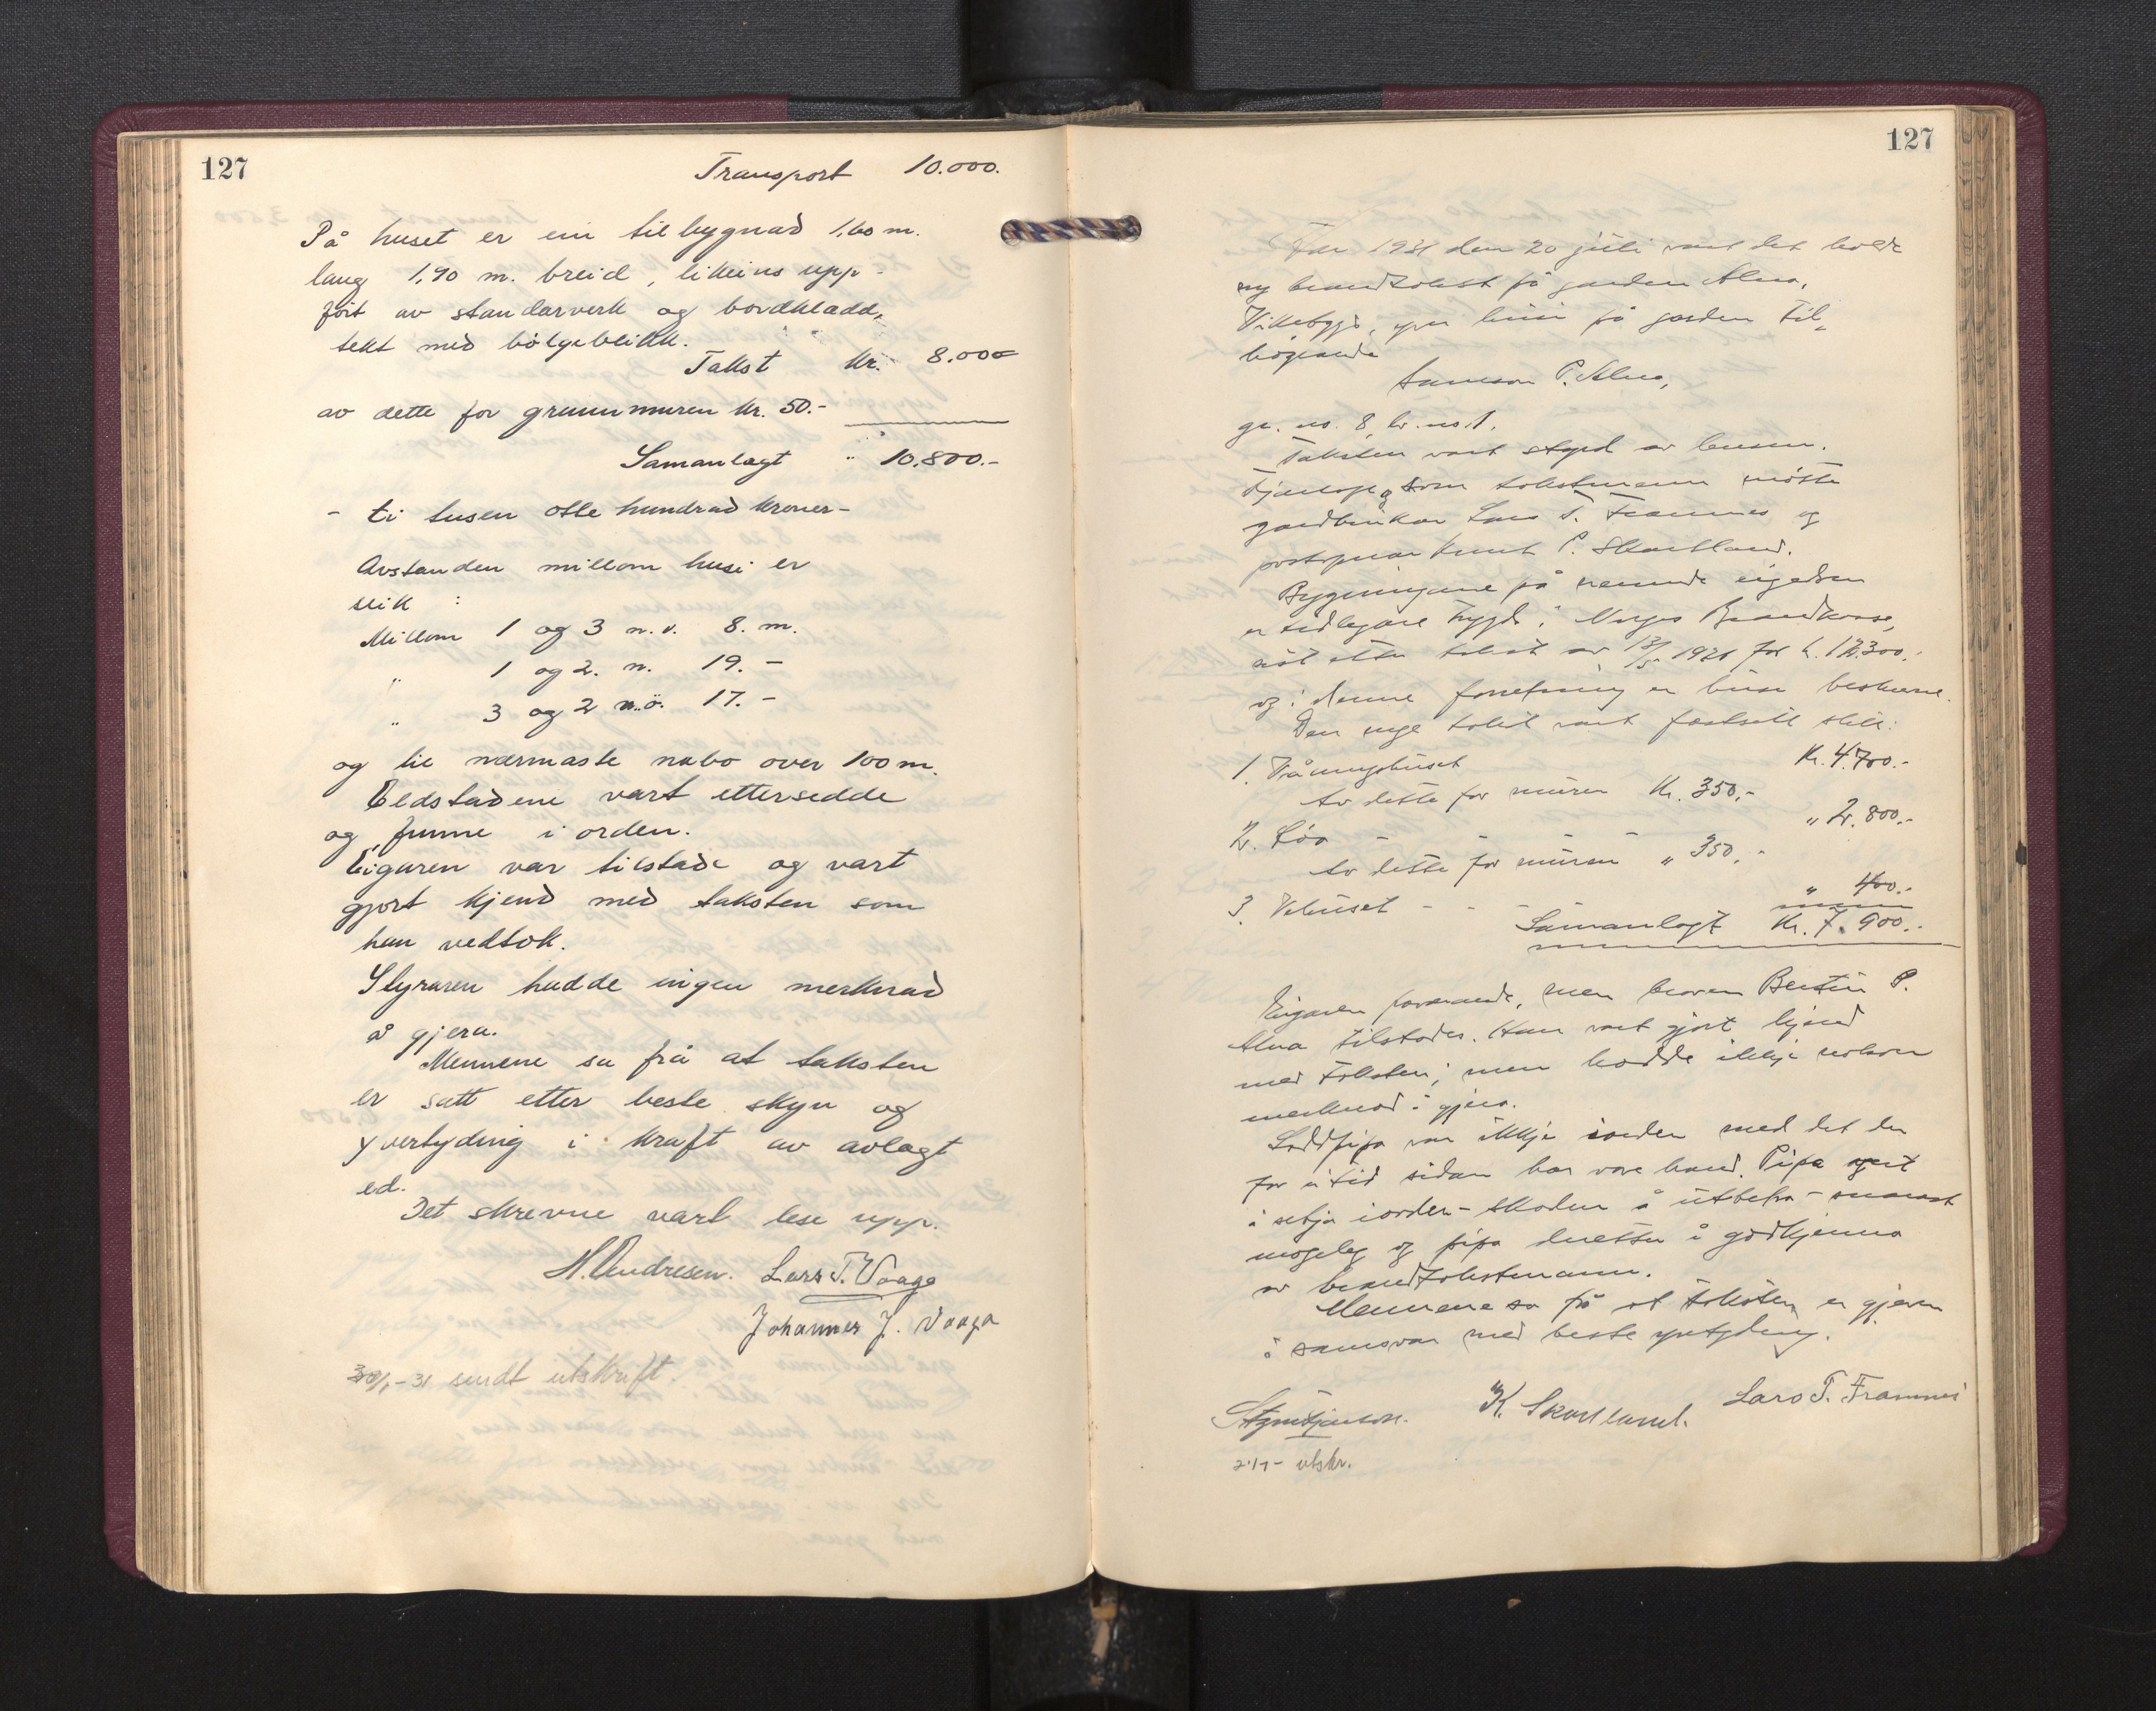 127
Transport 10.000.
På huset er ein tilbygnad 1,60 m.
lang 1,90 m. breid, likeins upp-
ført av standarverk og bordkladd,
tekt med bölgeblikk.
Takst kr. 8.000
av dette for grunnmuren kr. 50.-
Samanlagt " 10.800.-
- ti tusen otte hundrad kroner -
Avstanden millom husi er
slik :
Millom 1 og 3 n.v. 8. m.
" 1 og 2. n. 19. -
" 3 og 2 n.ö. 17. -
og til nærmaste nabo over 100 m.
Eldstadene vart ettersedde
og funne i orden.
Eigaren var tilstade og vart
gjort kjend med taksten som
han vedtok.
Styraren hadde ingen merknad
å gjera.
Mennene sa frå at taksten
er satt etter beste skyn og
yvertyding i kraft av avlagt
ed.
Det skrevne vart lese upp.
H. Andresen. Lars T. Vaage
Johannes J. Vaaga
30/1-31 sendt utskrift.
127
År 1931 den 20 juli vart det halde
ny brandtakst på garden Alna,
Vikebygd, yver husi på garden til-
høyrande
Samson P. Alna,
gr. no. 8 br. no 1.
Taksten vart styrd av lensm.
og som takstmenn møtte
gardbrukar Lars T. Framnes og
postopnar Knut P. Skartland.
Bygningane på nemnde eigedom
er tidlegare trygda i Norges Brandkasse,
sist etter takst av 13/5 1920 for kr. 12.300.
og i denne forretning er husi beskrevne.
Den nye takst vart fastsett slik:
1. Våningshuset Kr. 4.700.-
Av dette for muren Kr. 350,-
2. Løa - - - " 2.800.-
Av dette for muren " 350,-
3. Vehuset - - - " 400.-
Samanlagt Kr. 7.900.-
Eigaren fraverande, men broren Bertin P.
Alna tilstades. Han vart gjort kjend
med taksten, men hadde ikkje nokon
merknad å gjera.
var ikkje iorden med det den
for ei tid sidan har vore brand. Pipa
å setja iorden - skaden å utbetra - snarast
mogeleg og pipa deretter å godkjenna
av brandtakstmann.
Mennene sa frå at taksten er gjeven
i samsvar med beste yvertyding.
K. Skartland. Lars T. Framnes
21/7- utskr.